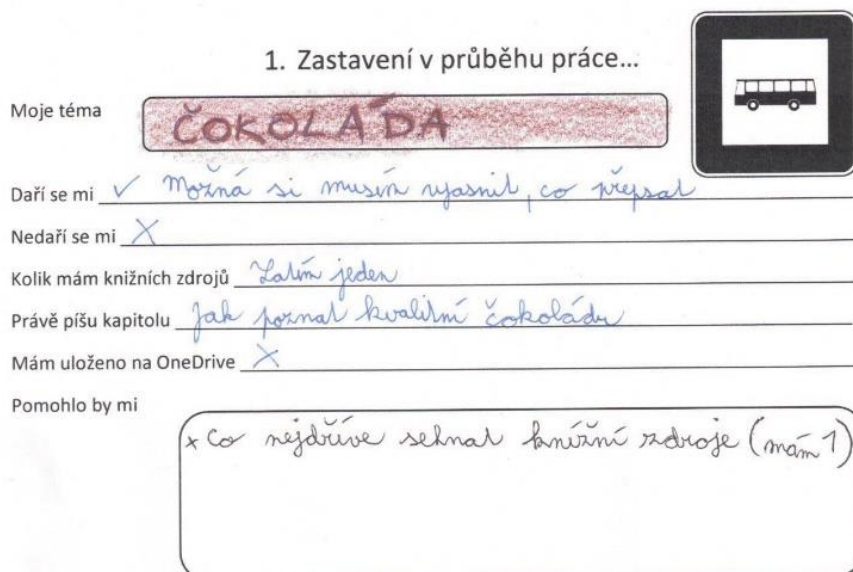 1. Zastavení v průběhu práce...
Moje téma ČOKOLÁDA
Daří se mi ✓ Možná si musím ujasnit, co přepsat
Nedaří se mi X
Kolik mám knižních zdrojů Zatím jeden
Právě píšu kapitolu Jak poznat kvalitní čokoládu
Mám uloženo na OneDrive X
Pomohlo by mi
+ Co nejdříve sehnat knižní zdroje (mám 1)